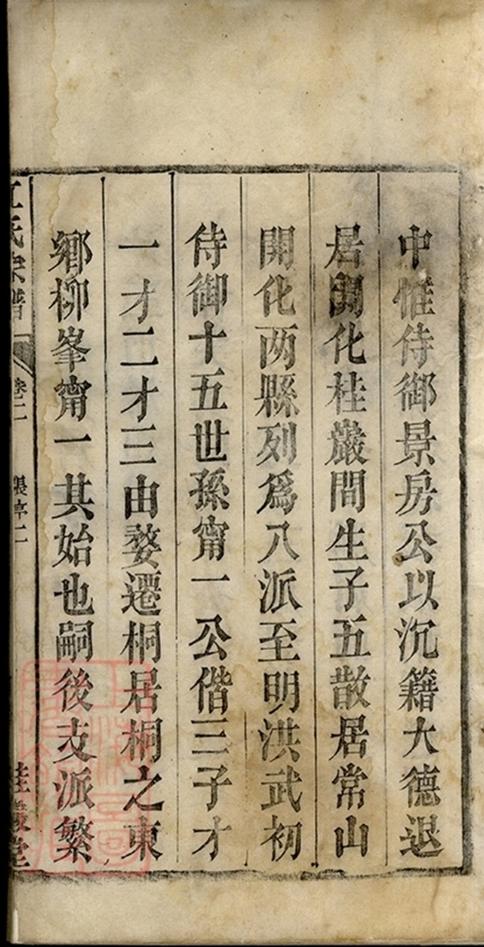 中惟侍御景房公以沉籍大德退
居開化桂巖間生子五散居常山
開化两縣列爲八派至明洪武初
侍御十五世孫甯一公偕三子才
一才二才三由婺遷桐居桐之東
鄉柳峯甯一其始也嗣後支派繁
江氏宗譜 卷二 桂巖堂